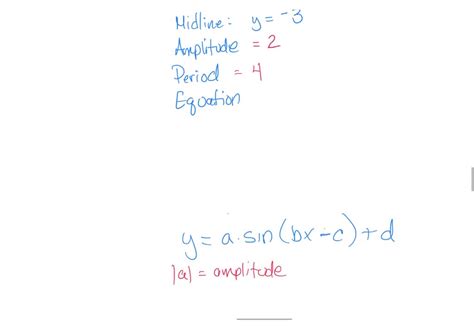 Midline: y = -3
Amplitude = 2
Period = 4
Equation
y = a·sin(bx-c)+d
|a| = amplitude